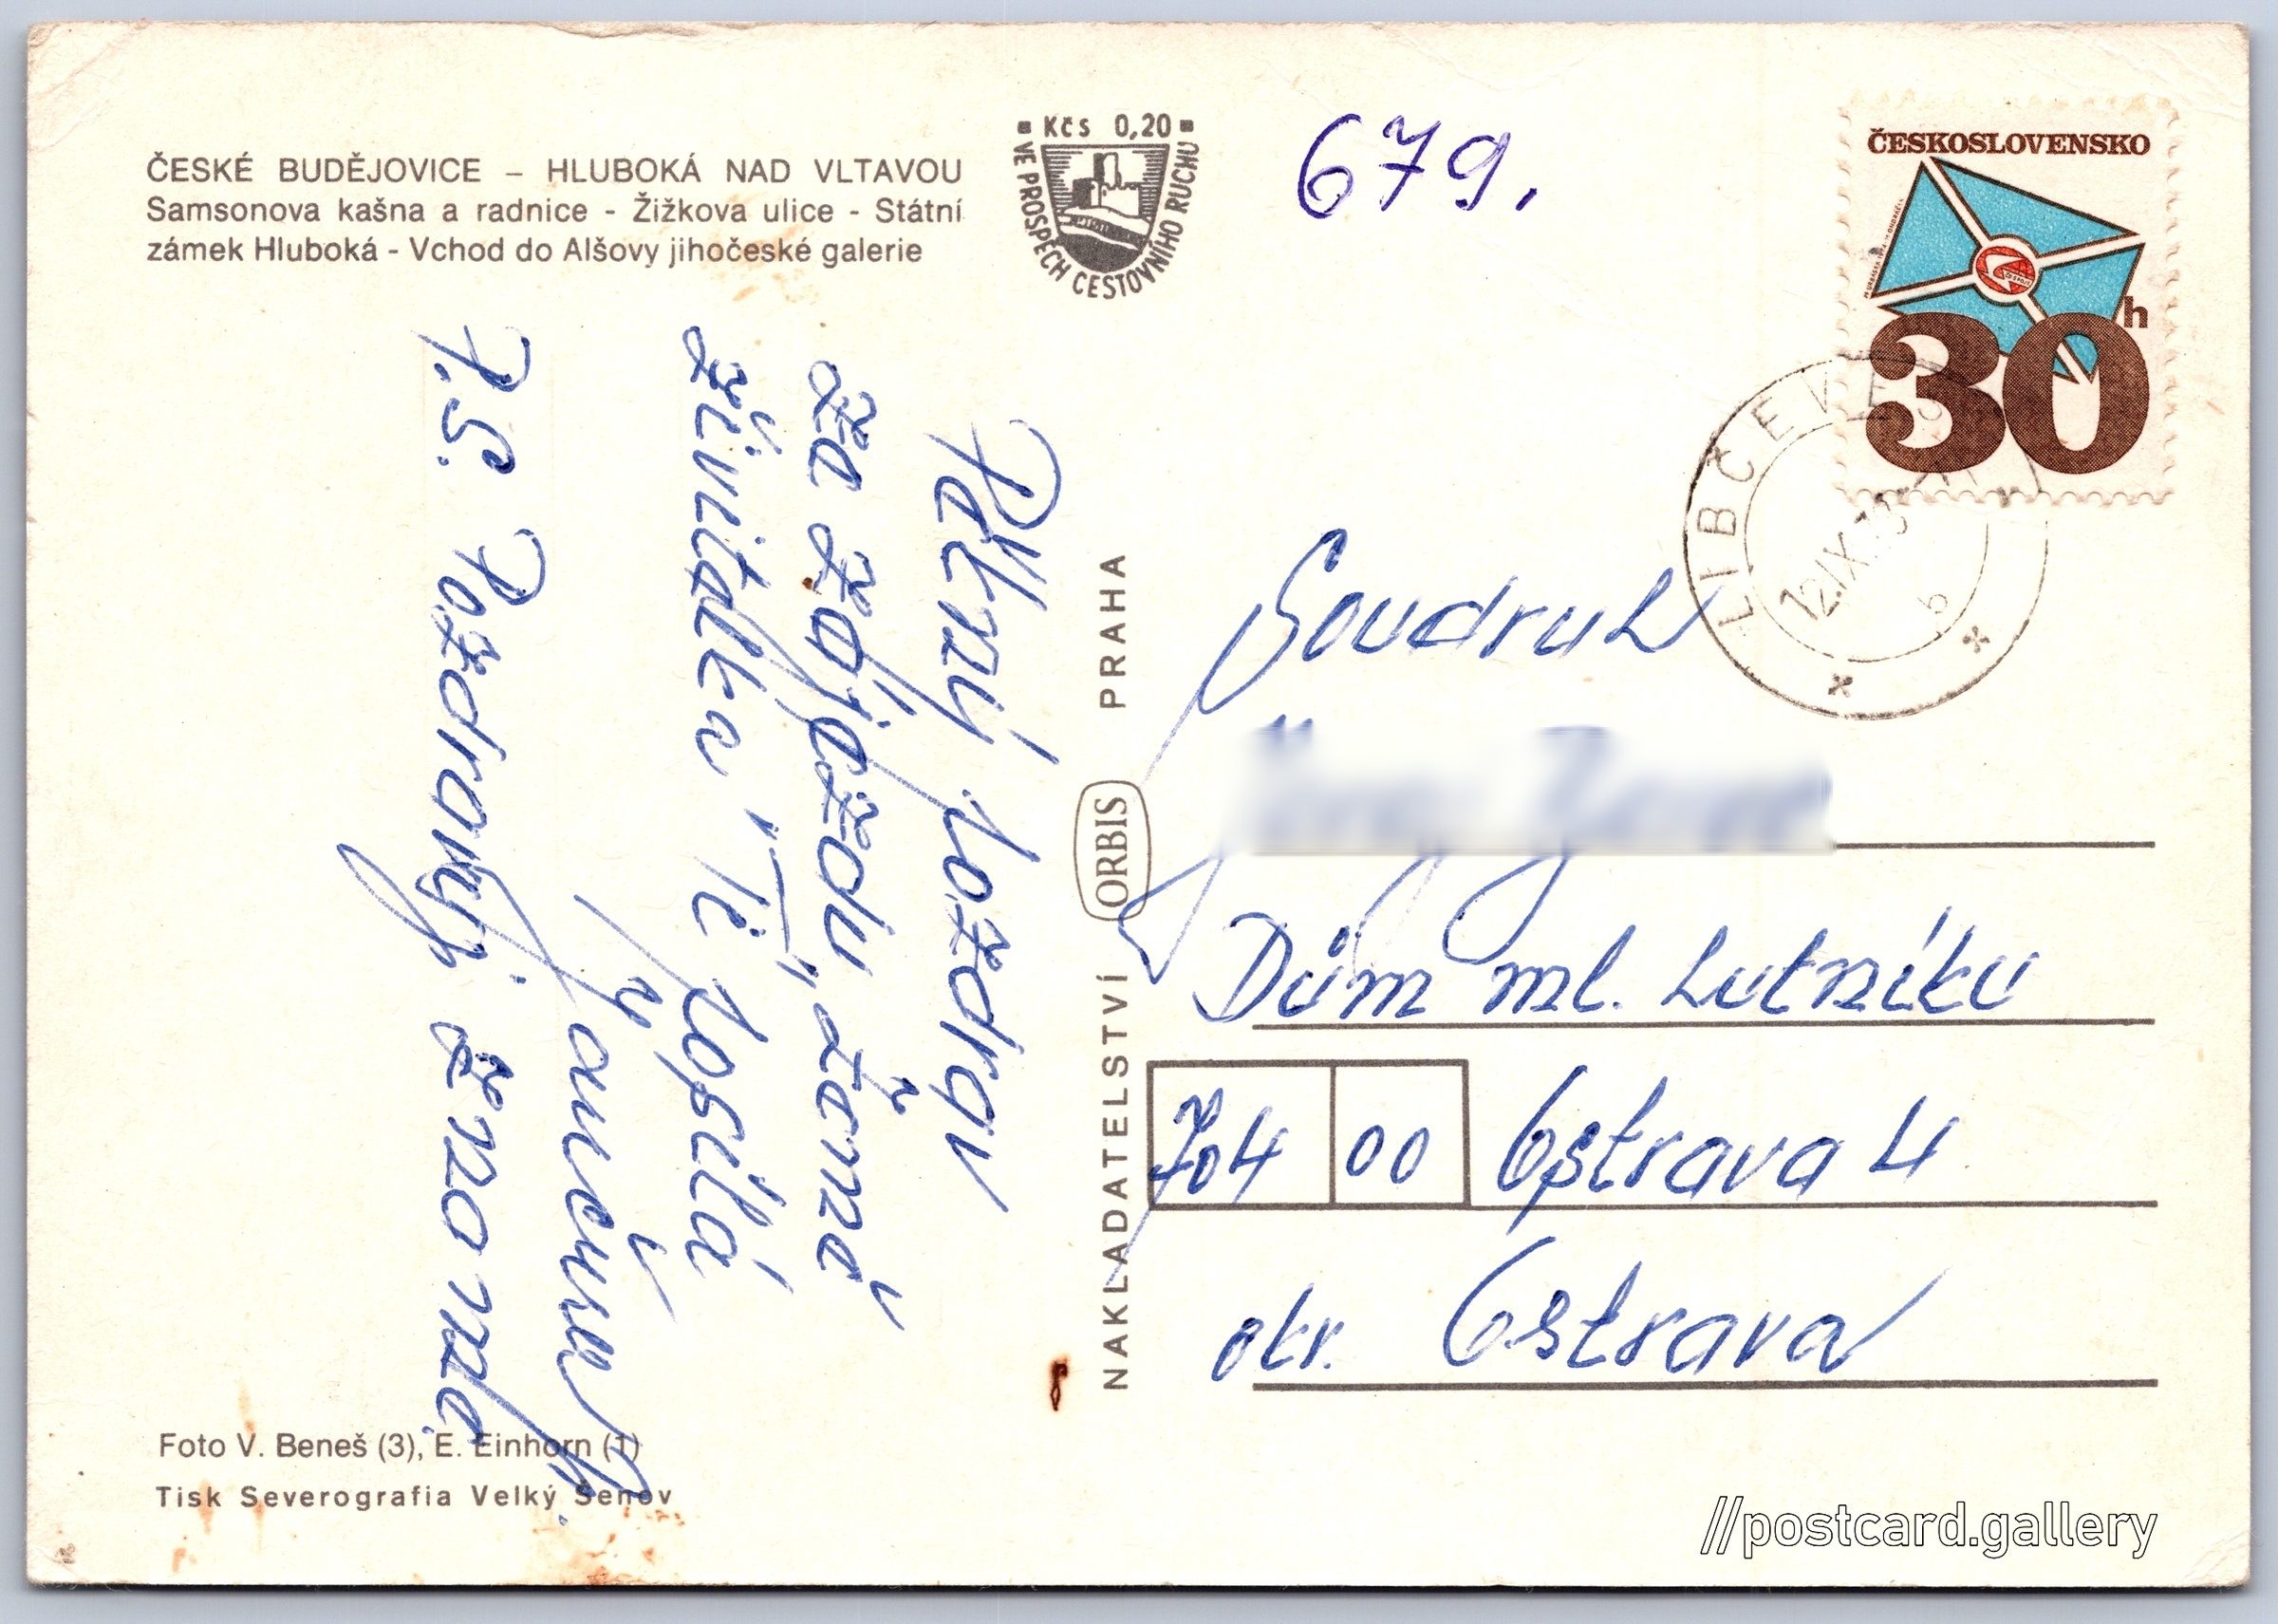 ČESKÉ BUDĚJOVICE – HLUBOKÁ NAD VLTAVOU
Samsonova kašna a radnice - Žižkova ulice - Státní
zámek Hluboká - Vchod do Alšovy jihočeské galerie
Kčs 0,20
VE PROSPĚCH CESTOVNÍHO RUCHU
679.
ČESKOSLOVENSKO
30 h
LIBČEVES
12.IX.
b
Pěkný pozdrav
ze zájezdu, země
živitelka" Ti posílá
P.S. Pozdravuj
NAKLADATELSTVÍ ORBIS PRAHA
Soudruh
Dům ml. hutníků
704 00 Ostrava 4
okr. Ostrava
Foto V. Beneš (3), E. Einhorn (1)
Tisk Severografia Velký Šenov
//postcard.gallery